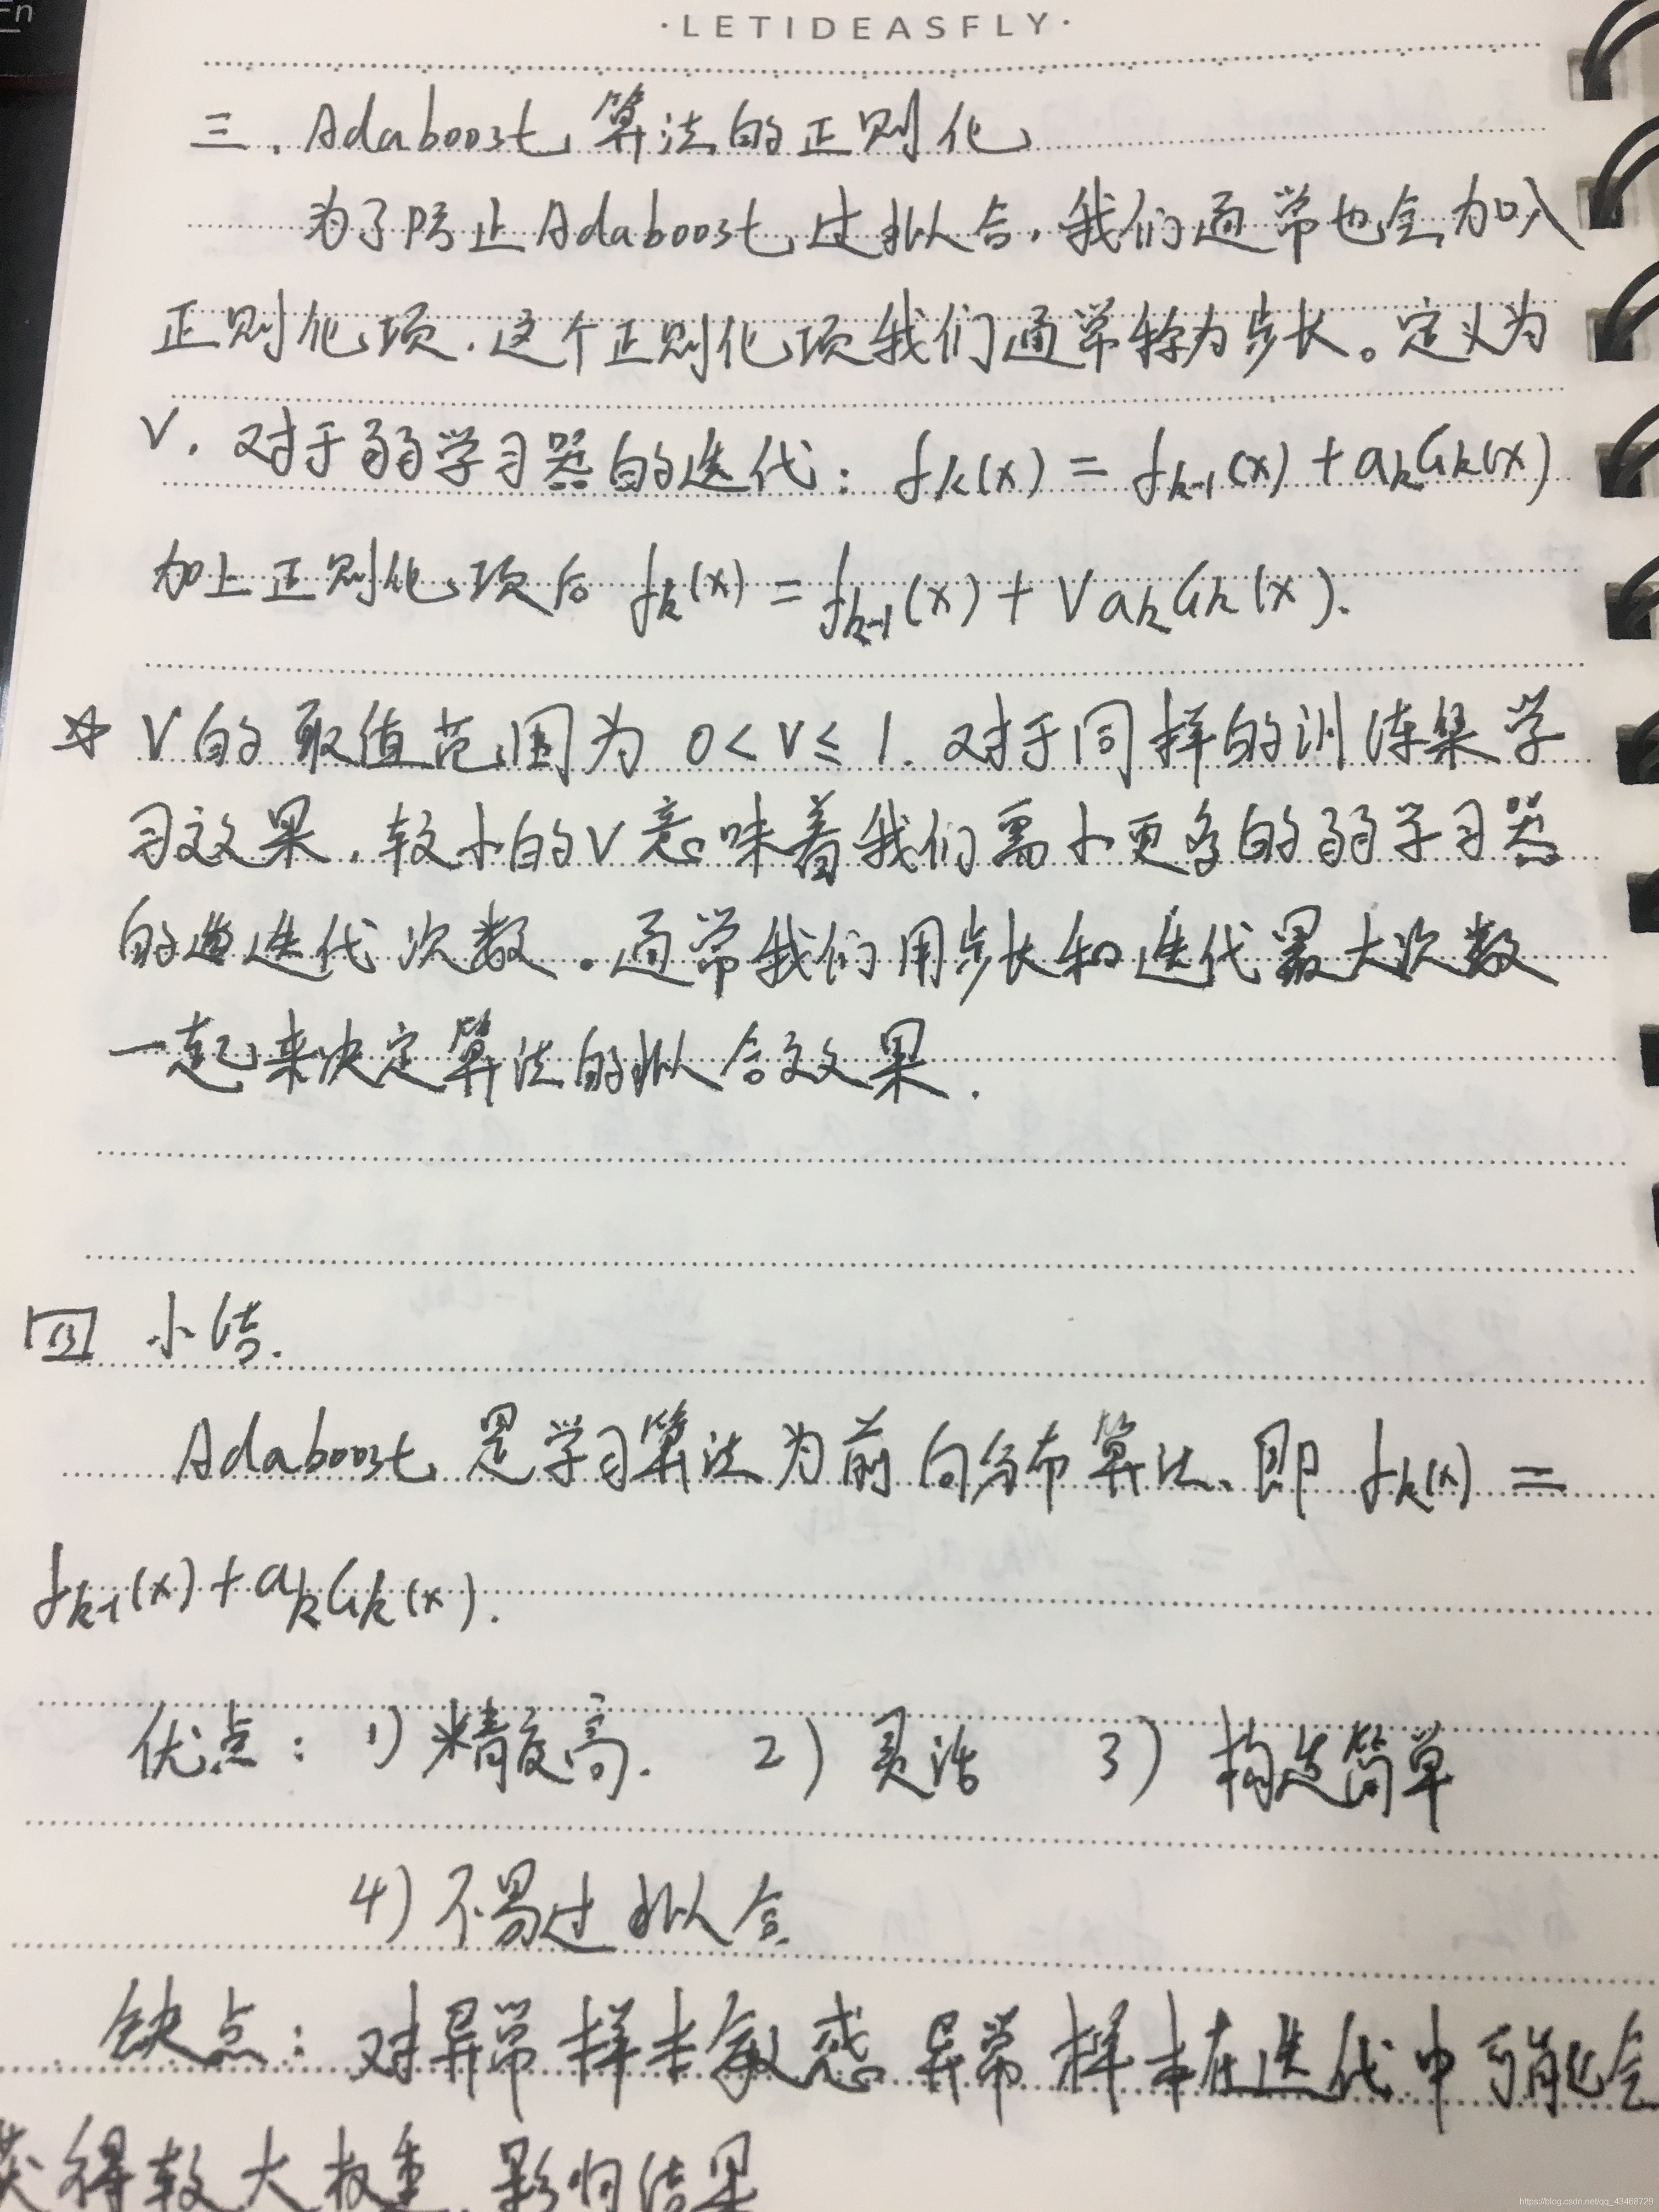 En
·LETIDEASFLY·
三. Adaboost 算法的正则化
为了防止Adaboost过拟合,我们通常也会加入
正则化项,这个正则化项我们通常称为步长。定义为
V. 对于弱学习器的迭代: fk(x) = fk-1(x) + akGk(x)
加上正则化项后 fk(x) = fk-1(x) + VakGk(x).
☆ V的取值范围为 0<V≤1. 对于同样的训练集学
习效果,较小的V意味着我们需要更多的弱学习器
的迭代次数.通常我们用步长和迭代最大次数
一起来决定算法的拟合效果.
四 小结.
Adaboost 是学习算法为前向分布算法、即 fk(x) =
fk-1(x)+akGk(x).
优点: 1) 精度高. 2) 灵活 3) 构造简单
4) 不易过拟合
缺点: 对异常样本敏感 异常样本在迭代中可能会
获得较大权重,影响结果
https://blog.csdn.net/qq_43468729